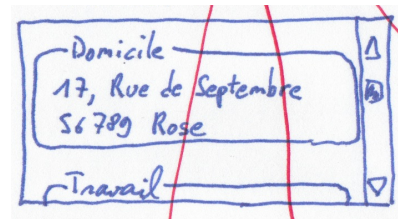 Domicile
17, Rue de Septembre
56789 Rose
Travail